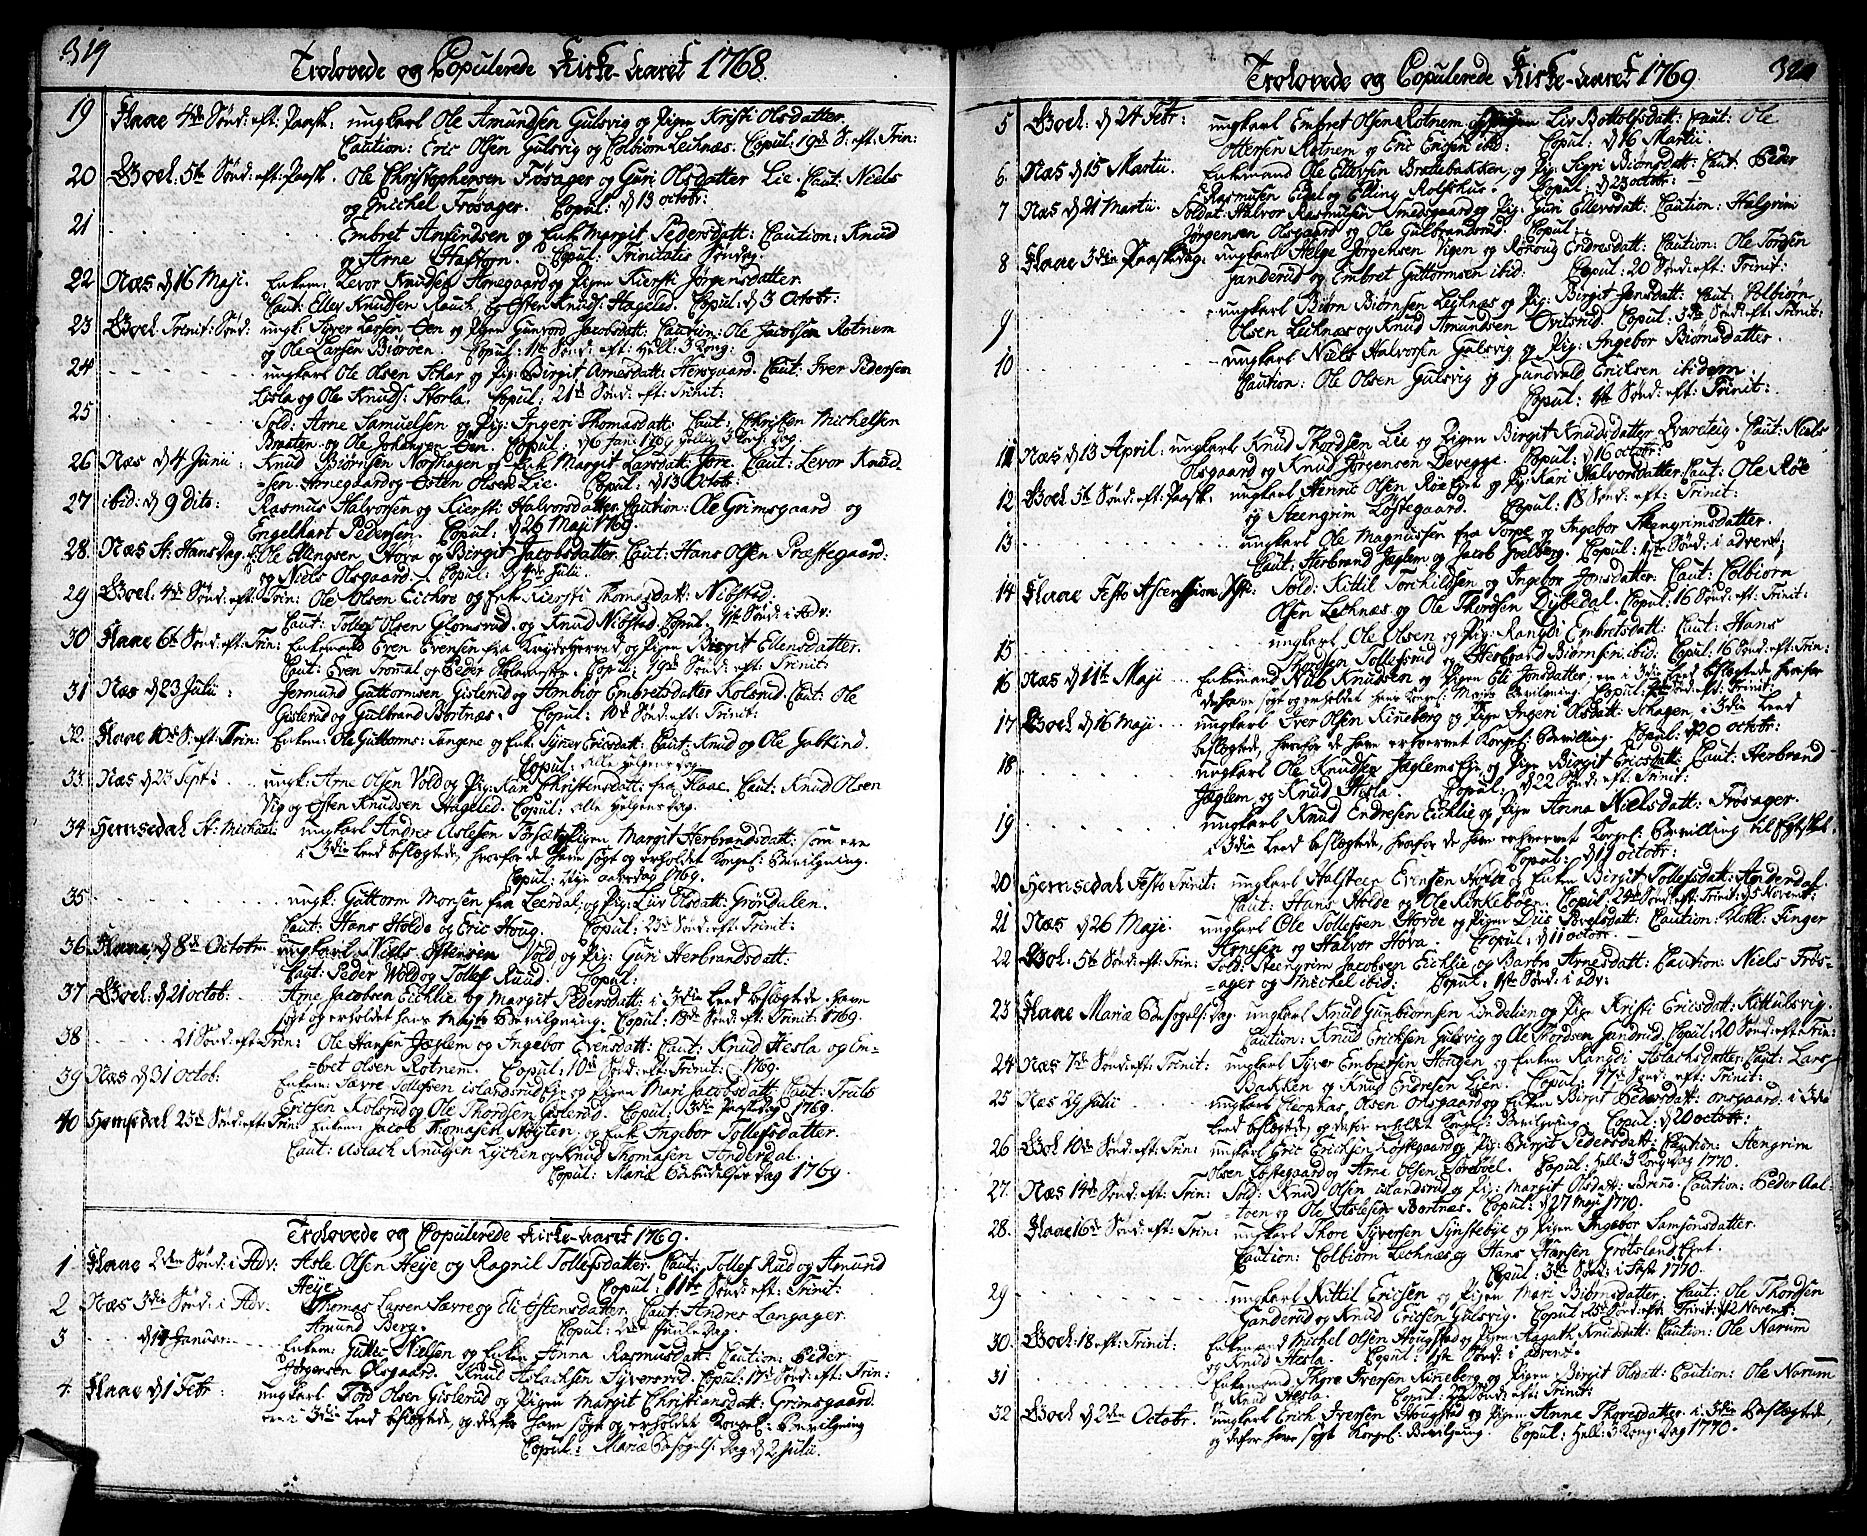 319
Trolovede og Copulerede Kirke-aaret 1768.
19 Flaae 4de Sønd: eft: Paask: ungkarl Ole Amundsen Gulsvig og Pigen Kristi Olsdatter.
Caution: Eric Olsen Gulsvig og Colbiørn Lechnæs. Copul: 19de S: eft: Trin:
20 Goel. 5te Sønd: eft: Paask. Ole Christophersen Frøsager og Guri Olsdatter Lie. Caut: Niels
og Michel Frøsager. Copul: d 13 octobr:
21 Embret Anfindsen og Enk: Margit Pedersdatt: Caution: Knud
og Arne Haftorn. Copul: Trinitatis Søndag.
22 Næs d 16 Maji. Enkem: Levor Knudsen Arnegaard og Pigen Kiersti Jørgensdatter
Caut: Ellev Knudsen Rauk, og Østen Knuds: Hageled Copul: d 3 Octobr:
23 Goel. Trinit: Sønd: ungk: Siver Larsen Øen og Pigen Gunvord Jacobsdatt: Caution: Ole Jacobsen Rotnem
og Ole Larsen Biøröen. Copul: 1ste Sønd: eft: Hell: 3 Kong:
24 ungkarl Ole Olsen Schar og Pig: Birgit Arnesdatt: Hersgaard. Caut: Iver Pedersen
Lisla og Ole Knuds: Storla. Copul: 21de Sønd: eft: Trinit:
25 Sold: Arne Samuelsen og Pig: Ingeri Thomasdatt: Caut: Christen Michelsen
Braaten og Ole Johansen Øen. Copul: d 6 Jan: 1769 hellig 3 Kong: dag.
26 Næs d 4 Junii: Knud Biørnsen Nordhagen og Enk: Margit Larsdatt: Jøre. Caut: Levor Knud-
-sen Arnegaard og Østen Olsen Lie. Copul: d 13 Octobr:
27 ibid: d 9 Dito: Rasmus Halvorsen og Kiersti Halvorsdatter Caution: Ole Grimsgaard og
Engelhart Pedersen. Copul: d 26 Maji 1769.
28. Næs St: Hans Dag. Ole Ellingsen Hova og Birgit Jacobsdatter. Caut: Hans Olsen Præstegaard:
og Niels Olsgaard. Copul: d 4de Julii.
29 Goel. 4de Sønd: eft: Trin: Ole Olsen Eichre og Enk: Kiersti Thomasdatt: Nibstad:
Caut: Tollef Olsen Glomsrud og Knud Nibstad Copul: 1ste Sønd: i Adv:
30 Flaae 6te Sønd: eft: Trin: Enkemand Even Evensen fra Krydsherred og Pigen Birgit Ellensdatter.
Caut: Even Tromal og Peder Skolemester. Copul: 19de Sønd: eft: Trinit:
31 Næs d 23 Julii: Jermund Guttormsen Gislerud og Ambiör Embretsdatter Kolsrud. Caut: Ole
Gislerud og Gulbrand Bortnæs. Copul: 10de Sønd: eft: Trinit:
32. Flaae 10de S: eft: Trin: Enkem: Ole Guttorms: Tangene og Enk: Synev Ericsdatt: Caut: Knud og Ole Jaltind.
Copul: Alle helgens dag.
33. Næs d 23 Sept: ungk: Arne Olsen Vold og Pig: Kari Christensdatt: fra Flaae. Caut: Knud Olsen
Vig og Østen Knudsen Hageled. Copul: alle helgens dag.
34 Hemsedal St: Michaeli: ungkarl Andres Aslesen Torset og Pigen Margit Herbrandsdatt: som ere
i 3die Leed beslægtede, hvorfor de have søgt og erholdet Kongel: Bevilgning.
Copul: Nye aarsdag 1769.
35 ungk: Guttorm Monsen fra Leerdal og Pig: Liv Olsdatt: Grøndalen.
Caut: Hans Holde og Eric Houg. Copul: 23de Sønd: eft: Trinit:
36 Flaae, d 8de Octobr ungkarl Niels Østensen Vold og Pig: Guri Herbrandsdatt:
Caut: Peder Wold og Tollef Ruud. Copul:
37 Goel: d 21 octob: Arne Jacobsen Eichlie og Margit Pedersdatt: i 3die Leed beslægtede, have
søgt og erholdet hans Mayts Bevilgning. Copul: 18de Sønd: eft: Trinit: 1769.
38 21 Sønd: eft: Trin: Ole Hansen Jæglem og Ingebor Evensdatt: Caut: Knud Hesla og Em-
-bret Olsen Rotnem. Copul: 10de Sønd: eft: Trinit: 1769.
39 Næs d 31 Octob: Enkem: Sævre Tollefsen Islandsrud Eje og Pigen Mari Jacobsdatt: Caut: Truls
Ericsen Kolsrud og Ole Thordsen Gislerud. Copul: 3die Paaskedag 1769.
40 Hemsedal 23de Sønd: eft: Trin: Enkem: Jacob Thomasen Nøyten, og Enk: Ingebor Tollefsdatter.
Caut: Aslach Knudsen Lychen og Knud Thomasen Tonderdal.
Copul: Mariæ Bebudelses Dag 1769.
Trolovede og Copulerede Kirke-aaret 1769.
1 Flaae 2den Sønd: i Adv: Asle Olsen Heye og Ragnil Tollefsdatter. Caut: Tollef Rud og Amund
Heye. Copul: 11te Sønd: eft: Trinit:
2 Næs 3die Sønd: i Adv: Thomas Larsen Sævre og Eli Østensdatter. Caut: Andres Langager.
Amund Berg. Copul: 2den Juule Dag.
3 d 14 Januar: Enkem: Gutte Nielsen og Enken Anna Rasmusdatt: Caution: Peder
Jørgensen Olsgaard. Knud Aslachsen Syversrud. Copul: 17de Sønd: eft: Trin:
4. Flaae d 1 Febr: ungkarl Tord Olsen Gislerud og Pigen Margit Christiansdatt: Grimsgaard.
ere i 3die Leed beslægtede, og derfor have søgt og erholdet Kongel: Bevilgning
Copul: Mariæ Besøgels: Dag d 2 Julii.
320
Trolovede og Copulerede Kirke-aaret 1769.
5 Goel: d 24 Febr: ungkarl Embret Olsen Rotnem og Pigen Liv Bottolfsdatt: Caut: Ole
Ottersen Rotnem og Eric Ericsen ibid: Copul: d 16 Martii
6. Næs d 15 Martii. Enkemand Ole Ellevsen Bratebakken, og Pig: Sigri Biørnsdatt: Caut. Peder
Rasmusen Eidal og Elling Rolfshus. Copul: d 23 octobr:
7 Næs d 21 Martii. Soldat: Halvor Rasmusen Smedsgaard og Pig: Guri Ellevsdatt: Caution: Halgrim
Jørgensen Olsgaard og Ole Gulbrandsrud. Copul:
8 Flaae 3die Paaskedag: ungkarl Helge Jørgensen Vigen og Rønoug Endresdatt: Caution: Ole Tordsen
Ganderud og Embret Guttormsen ibid: Copul: 20 Sønd: eft: Trinit:
9 ungkarl Biørn Biørnsen Leichnæs og Pig: Birgit Jonsdatt: Caut: Colbiørn
Olsen Leichnæs og Knud Amundsen Qvitsrud. Copul: 3de Sønd: eft: Trinit:
10 ungkarl Niels Halvorsen Gulsvig og Pig: Ingebor Biørnsdatter.
Caution: Ole Olsen Gulsvig og Gundvald Ericksen ibidem.
Copul: 1ste Sønd: eft: Trinit:
11 Næs d 13 April. ungkarl Knud Thordsen Lie og Pigen Birgit Knudsdatter Qvarteig. Caut: Niels
Olsgaard og Knud Jørgensen Devegge. Copul: d 16 octobr:
12 Goel 5te Sønd: eft: Paask: ungkarl Henric Olsen Røe Eye og Pig: Kari Halvorsdatter Caut: Ole Røe
og Steengrim Løstegaard. Copul: 18 Sønd: eft: Trinit:
13 ungkarl Ole Magnussen fra Torpe og Ingebor Steengrimsdatter.
Caut: Herbrand Jæglem og Jacob Golberg. Copul: 1ste Sønd: i advent:
14 Flaae Festo Ascension: Xsti: Sold: Kittil Torchildsen og Ingebor Jonsdatter. Caut: Colbiørn
Olsen Lechnæs og Ole Thordsen Dybedal. Copul: 16 Sønd: eft: Trinit:
15 ungkarl Ole Olsen og Pig: Rangdi Embretsdatt: Caut: Hans
Thordsen Tollefsrud og Herbrand Biørnsen ibid: Copul: 16 Sønd: eft: Trin:
16 Næs d 11te Maji Enkemand Nils Knudsen og Pigen Eli Jonsdatter; ere i 3die Leed beslægtede hvorfor
de have søgt og erholdet hans Kongel: Mayts Bevilgning. Copul: Sønd: eft: Trinit:
17 Goel d 16 Maji ungkarl Iver Olsen Kineberg og Pigen Ingeri Olsdatt: Schagen, i 3die Leed
beslægtede, hvorfor de have erhvervet Kongel: Bevilling. Copul: d 20 octobr:
18 ungkarl Ole Knudsen Jæglems Eje, og Pigen Birgit Ericsdatt: Caut: Herbrand
Jæglem og Knud Hesla. Copul: d 22 Sønd: eft: Trinit:
19 ungkarl Knud Endresen Eichlie og Pigen Anna Nielsdatt: Frøsager.
i 3die Leed beslægtede, hvorfor de have erhvervet Kongel: Bevilling til Egteskab.
Copul: d 17 octobr:
20 Hemsedal Festo Trinit: ungkarl Halsteen Evensen Holde og Enken Birgit Tollefsdatt: Anderdal
Caut: Hans Holde og Ole Kirkeboen. Copul: 24de Sønd: eft: Trinit: d 5 Novemb:
21 Næs d 26 Maji. ungkarl Ole Tollefsen Hovde og Pigen Dus Povelsdatt: Caution: Finger
Arnesen og Halvor Hova. Copul: d 11 octobr.
22 Goel. 5te Sønd: eft: Trin: Sold: Steengrim Jacobsen Eichlie og Barbr Arnesdatt: Caution: Niels Frøs-
-ager og Michel ibid: Copul: 1ste Sønd: i adv:
23 Flaae Mariæ Besøgels: Dag. ungkarl Knud Gunbiørnsen Lindelien og Pigen Kristi Ericsdatt: Kittulsvig.
Caution: Knud Ericksen Gulsvig og Ole Thordsen Gandrud. Copul: 20 Sønd: eft: Trin:
24 Næs 7de Sønd: eft: Trinit: ungkarl Syver Embretsen Hougen og Enken Rangdi Aslachsdatter. Caut: Lars
Bakken og Knud Endresen Lien. Copul: 17de Sønd: eft: Trinit:
25 Næs 29 Julii ungkarl Cleophas Olsen Onsgaard og Enken Birgit Pedersdatt: Onsgaard. i 3die
Leed beslægtede, og derfor erholdet Kongel: Bevilgning Copul: d 20 octobr:
26 Goel 10de Sønd: eft: Trin: ungkarl Eric Ericksen Løstegaard og Pig: Birgit Pedersdatt: Caution: Stengrim
Olsen Løstegaard og Arne Olsen Torevoel. Copul: Hell: 3 Kong: dag 1770.
27. Næs 14de Sønd: eft: Trin: Sold: Knud Olsen Islandsrud og Pig: Margit Olsdatt: Breno. Caution: Peder Aal-
-toen og Ole Aslesen Bortnæs. Copul: d 27 Maji 1770.
28. Flaae 16de Sønd: eft: Trin: ungkarl Thore Syversen Synstebye og Pigen Ingebor Samsonsdatter.
Caution: Colbiörn Lechnæs og Hans Hansen Grötsland Ejet.
Copul: 3de Sønd: i Faste 1770.
29 ungkarl Kittil Ericsen og Pigen Mari Biørnsdatter. Caut: Ole Thordsen
Ganderud og Knud Ericsen Gulsvig. Copul: 25de Sønd: eft: Trinit: d 12 Novemb:
30. Goel: 18 eft: Trinit: Enkemand Michel Olsen Hougstad og Pigen Aagath Knudsdatt: Caution: Ole Narum
og Knud Hesla. Copul: 1ste Sønd: i advent.
31 Enkemand Thore Iversen Kineberg og Pigen Birgit Olsdatt: Caution: Ole Narum
og Knud Hesla. Copul: 22 Sønd: eft: Trinit:
32 Goel d 2den Octobr. ungkarl Erich Iversen Hougstad og Pigen Anne Thoresdatter. i 3die beslægtede,
og derfor have søgt Kongel: Bevilgning. Copul: Hell: 3 Kong: Dag 1770.